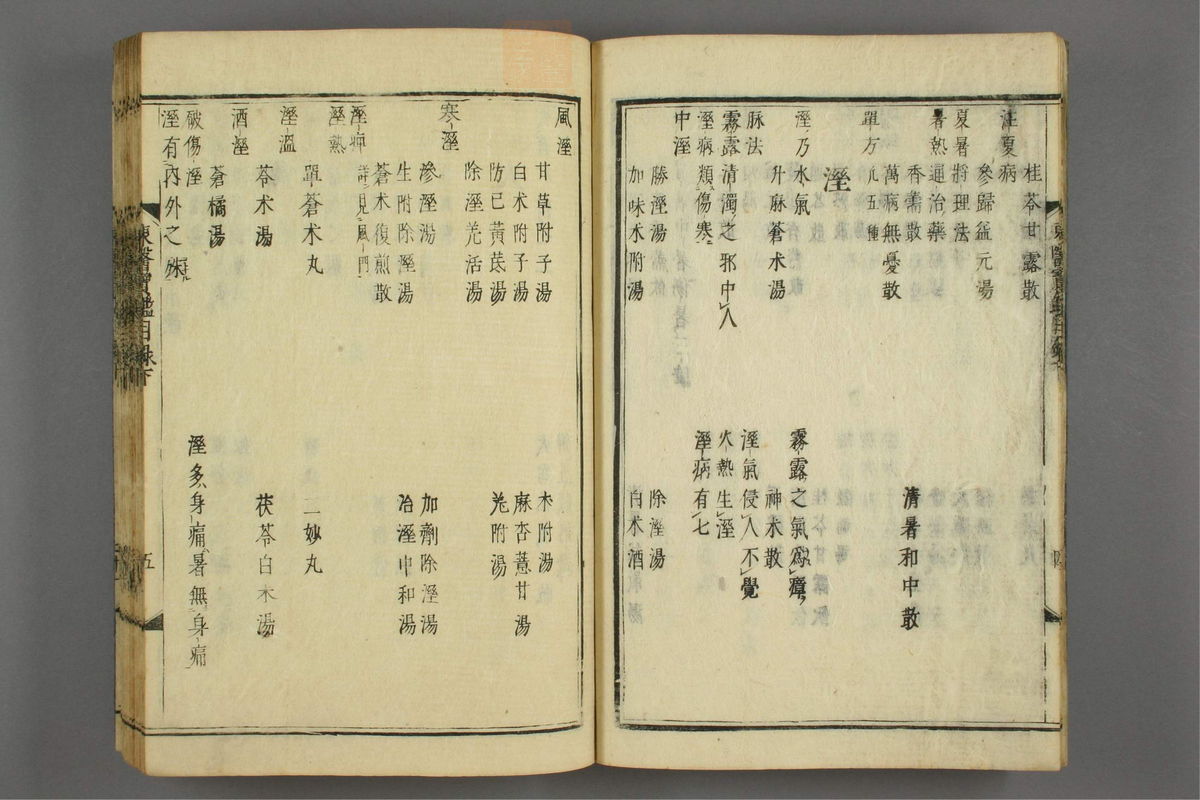 桂苓甘露散
注夏病
參歸益元湯
夏暑將理法
暑熱通治藥
香薷散
清暑和中散
萬病無憂散
單方 凡五種
溼
溼乃水氣
霧露之氣爲瘴
升麻蒼朮湯
神朮散
脉法
溼氣侵人不覺
霧露清濁之邪中人
火熱生溼
溼病類傷寒
溼病有七
中溼
勝溼湯
除溼湯
加味朮附湯
白朮酒
風溼
甘草附子湯
朮附湯
白朮附子湯
麻杏薏甘湯
防己黃芪湯
羌附湯
除溼羌活湯
寒溼
滲溼湯
加劑除溼湯
生附除溼湯
治溼中和湯
蒼朮復煎散
溼痺
詳見風門
溼熱
單蒼朮丸
二妙丸
溼溫
苓朮湯
茯苓白朮湯
酒溼
蒼橘湯
破傷溼
溼多身痛暑無身痛
溼有內外之殊
東醫寶鑑目錄下
五